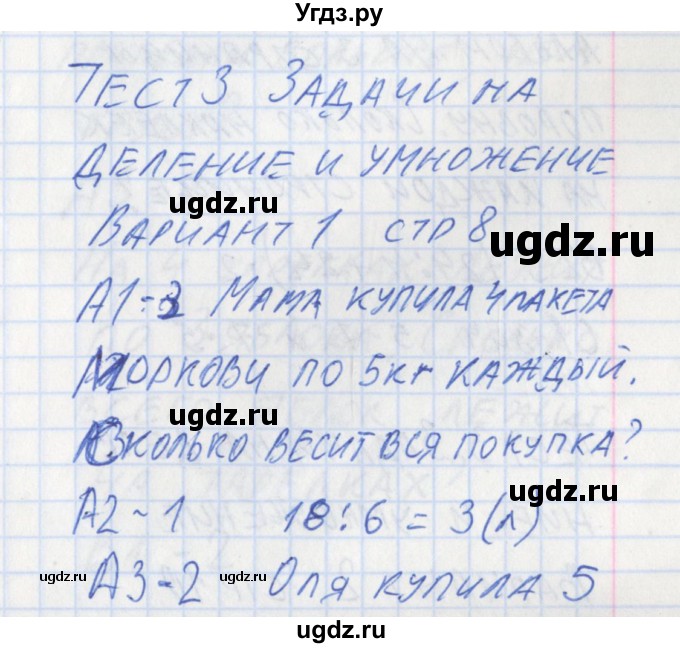 Угдз.ру
Тест 3 Задачи на
деление и умножение
ugdz.ru
Вариант 1 стр 8
ugdz.ru
А1-3 Мама купила 4 пакета
ugdz.ru
моркови по 5кг каждый.
ugdz.ru
Сколько весит вся покупка?
ugdz.ru
ugdz.ru
А2-1 18:6=3(л)
ugdz.ru
А3-2 Оля купила 5
ugdz.ru
ugdz.ru
ugdz.ru
ugdz.ru